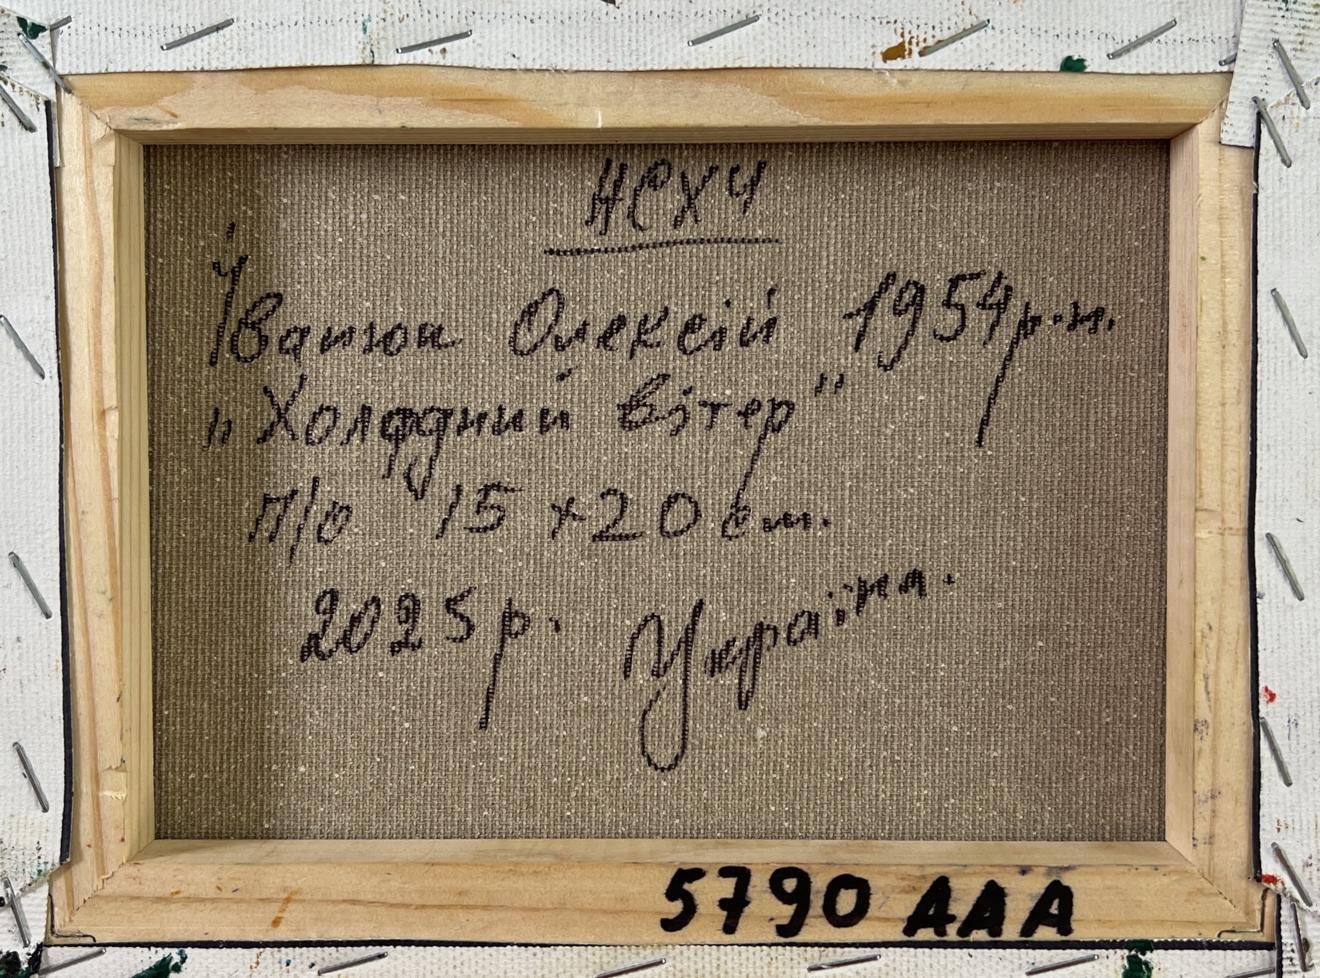 НСХУ
Іванюк Олексій 1954 р.н.
„Холодний вітер”
п/о 15 х 20 см.
2025 р. Україна.
5790 AAA